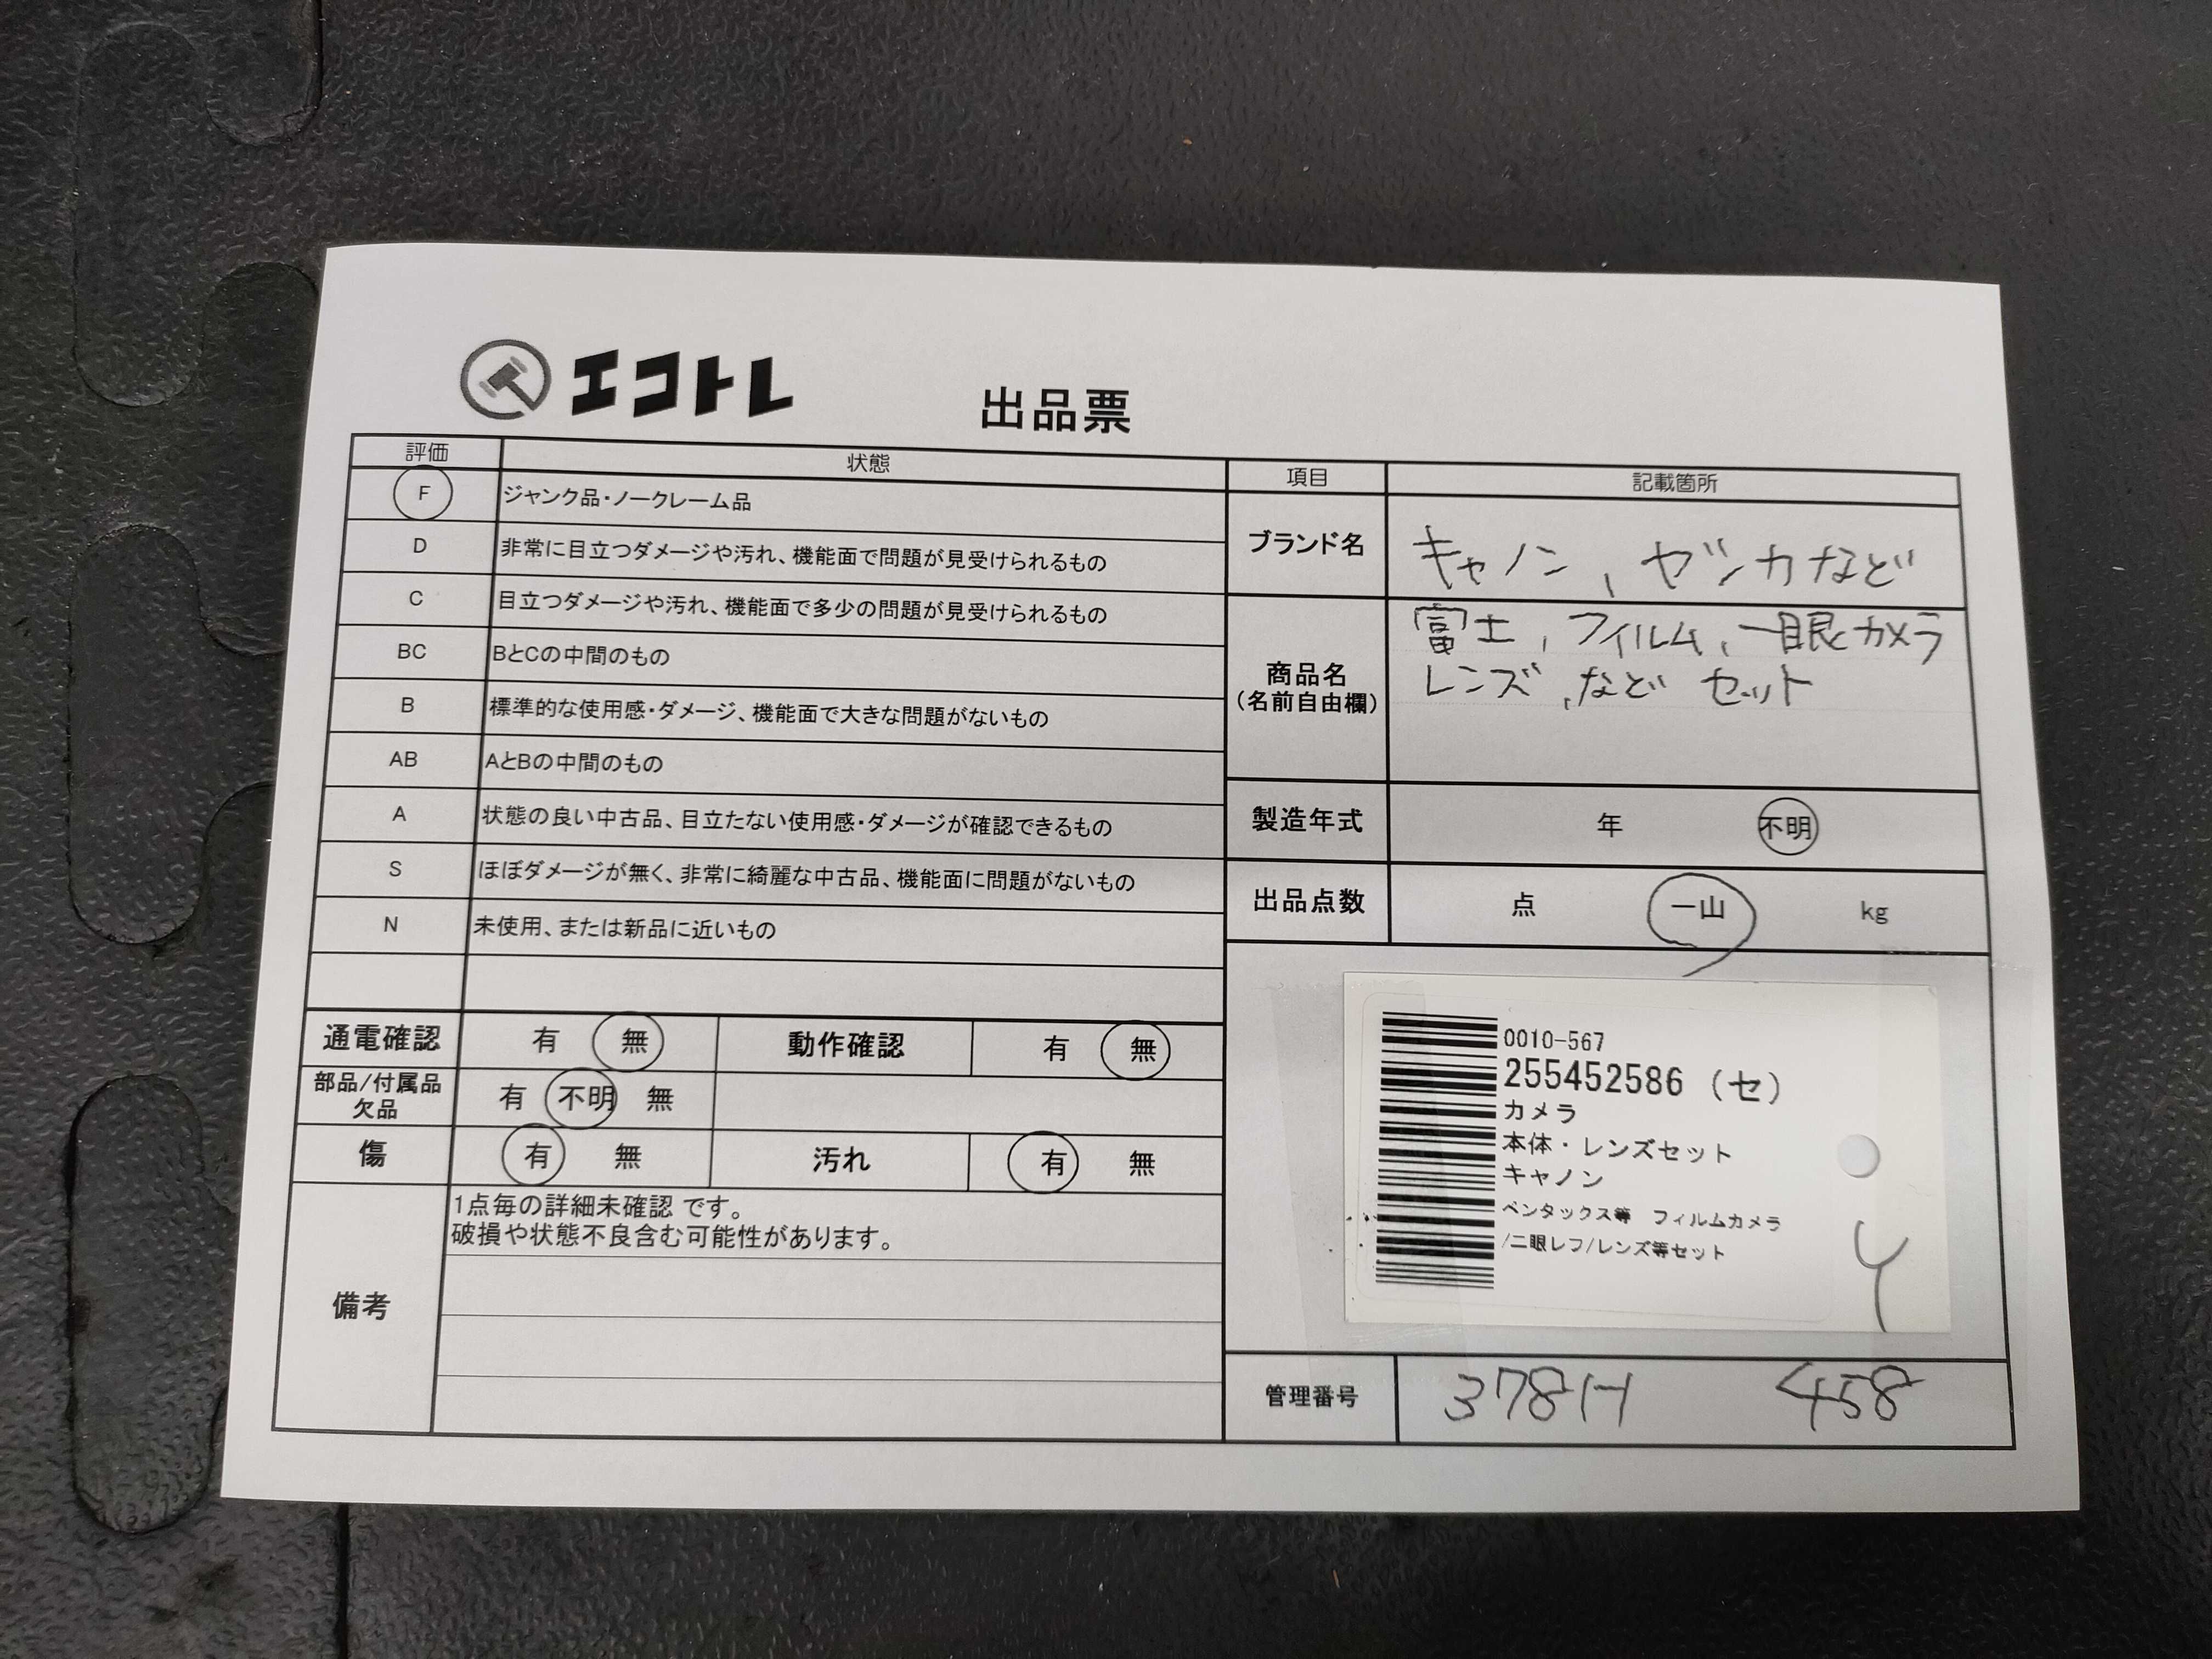 エコトレ
出品票
評価 状態
F ジャンク品・ノークレーム品
D 非常に目立つダメージや汚れ、機能面で問題が見受けられるもの
C 目立つダメージや汚れ、機能面で多少の問題が見受けられるもの
BC BとCの中間のもの
B 標準的な使用感・ダメージ、機能面で大きな問題がないもの
AB AとBの中間のもの
A 状態の良い中古品、目立たない使用感・ダメージが確認できるもの
S ほぼダメージが無く、非常に綺麗な中古品、機能面に問題がないもの
N 未使用、または新品に近いもの
通電確認 有 無 動作確認 有 無
部品/付属品
欠品
有 不明 無
傷 有 無 汚れ 有 無
備考
1点毎の詳細未確認 です。
破損や状態不良含む可能性があります。
項目 記載箇所
ブランド名 キャノン、ゼンカなど
商品名
(名前自由欄)
富士,フィルム,一眼カメラ
レンズ,など セット
製造年式 年 不明
出品点数 点 一山 kg
0010-567
255452586 (セ)
カメラ
本体・レンズセット
キャノン
ペンタックス等 フィルムカメラ
/二眼レフ/レンズ等セット
管理番号 378H 458